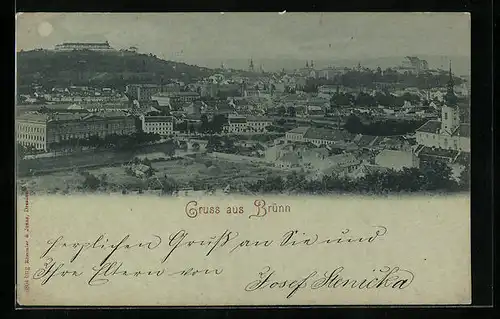 Gruss aus Brünn
herzlichen Gruß an Sie und
Ihre Eltern von
Josef Stenička